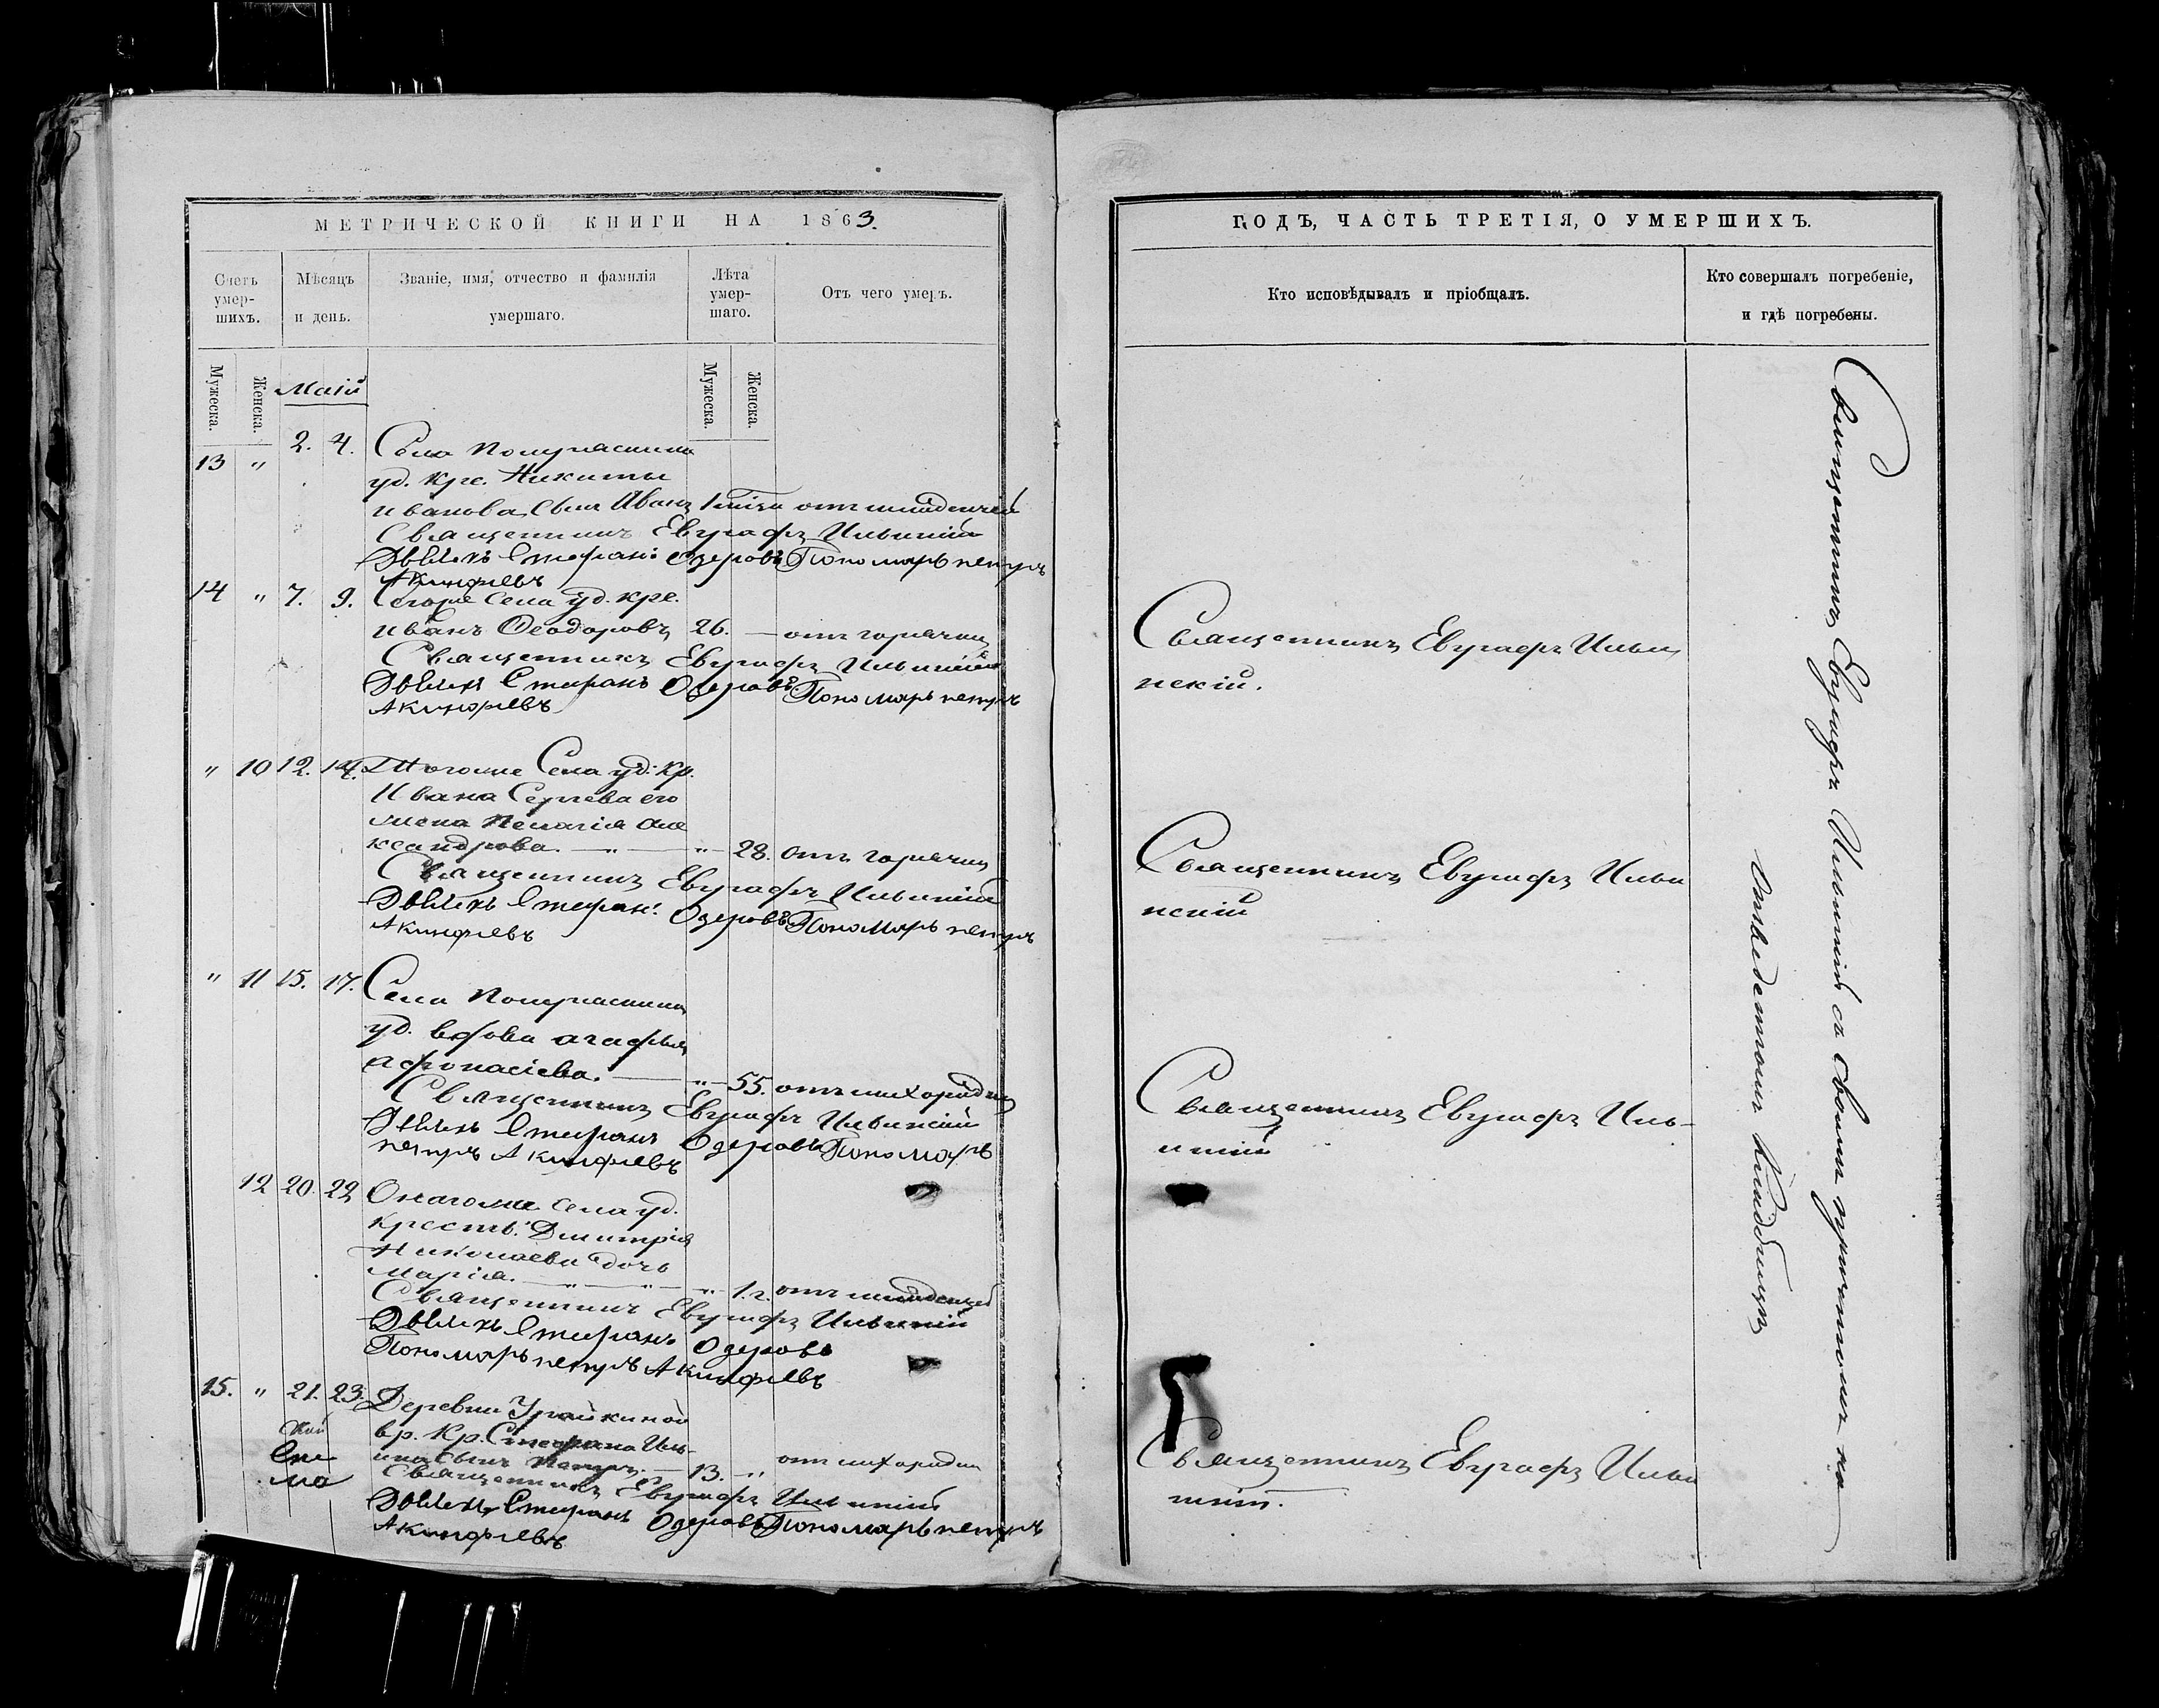 МЕТРИЧЕСКОЙ КНИГИ НА 1863.
Счетъ умер-шихъ.
Мѣсяцъ и день.
Званіе, имя, отчество и фамилія умершаго.
Лѣта умер-шаго.
Отъ чего умеръ.
Мужеска.
Женска.
Маій
Мужеска.
Женска.
13 " 2. 4. Села
уд. кре. Никиты
Иванова сынъ Иванъ 1 отъ
Священникъ Евграфъ Ильинскій
Дьячекъ Стефанъ Озеровъ Пономарь петръ
Акинфіевъ
14 " 7. 9. Тогоже Села уд. кре.
Иванъ Ѳеодоровъ 26. — отъ горячки
Священникъ Евграфъ Ильинскій
Дьячекъ Стефанъ Озеровъ Пономарь петръ
Акинфіевъ
" 10 12. 14. Тогоже Села уд. кр.
Ивана Сергева его
жена Пелагія Але
ксандрова. — " — " — 28. отъ горячки
Священникъ Евграфъ Ильинскій
Дьячекъ Стефанъ Озеровъ Пономарь петръ
Акинфіевъ
" 11 15. 17. Села
уд. вдова агафья
афонасіева. — " — 55. отъ лихорадки
Священникъ Евграфъ Ильинскій
Дьячекъ Стефанъ Озеровъ Пономарь
петръ Акинфіевъ
12 20. 22. Села уд.
крестъ. Димитрія
Николаева дочь
Марія. — " — " — " — 1. г. отъ
Священникъ Евграфъ Ильинскій
Дьячекъ Стефанъ Озеровъ
Пономарь петръ Акинфіевъ
15. " 21. 23. Деревни Урайкиной
вр. Кр. Стефана Иль-
ина сынъ Петръ. — 13. — " отъ лихорадки
Священникъ Евграфъ Ильинскій
Дьячекъ Стефанъ Озеровъ Пономарь петръ
Акинфіевъ
ГОДЪ, ЧАСТЬ ТРЕТІЯ, О УМЕРШИХЪ.
Кто исповѣдывалъ и пріобщалъ.
Кто совершалъ погребеніе,
и гдѣ погребены.
Священникъ Евграфъ Ильи
нскій.
Священникъ Евграфъ Ильи
нскій
Священникъ Евграфъ Иль-
инскій
Священникъ Евграфъ Ильи
нскій.
Священникъ Евграфъ Ильинскій съ своимъ причтомъ на
отведенномъ кладбищѣ